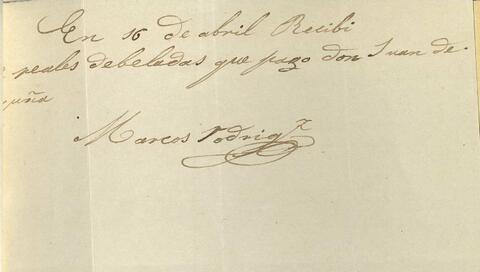 En 16 de abril Recibi
reales debeladas que pago don Juan de
uña
Marcos Rodrigz